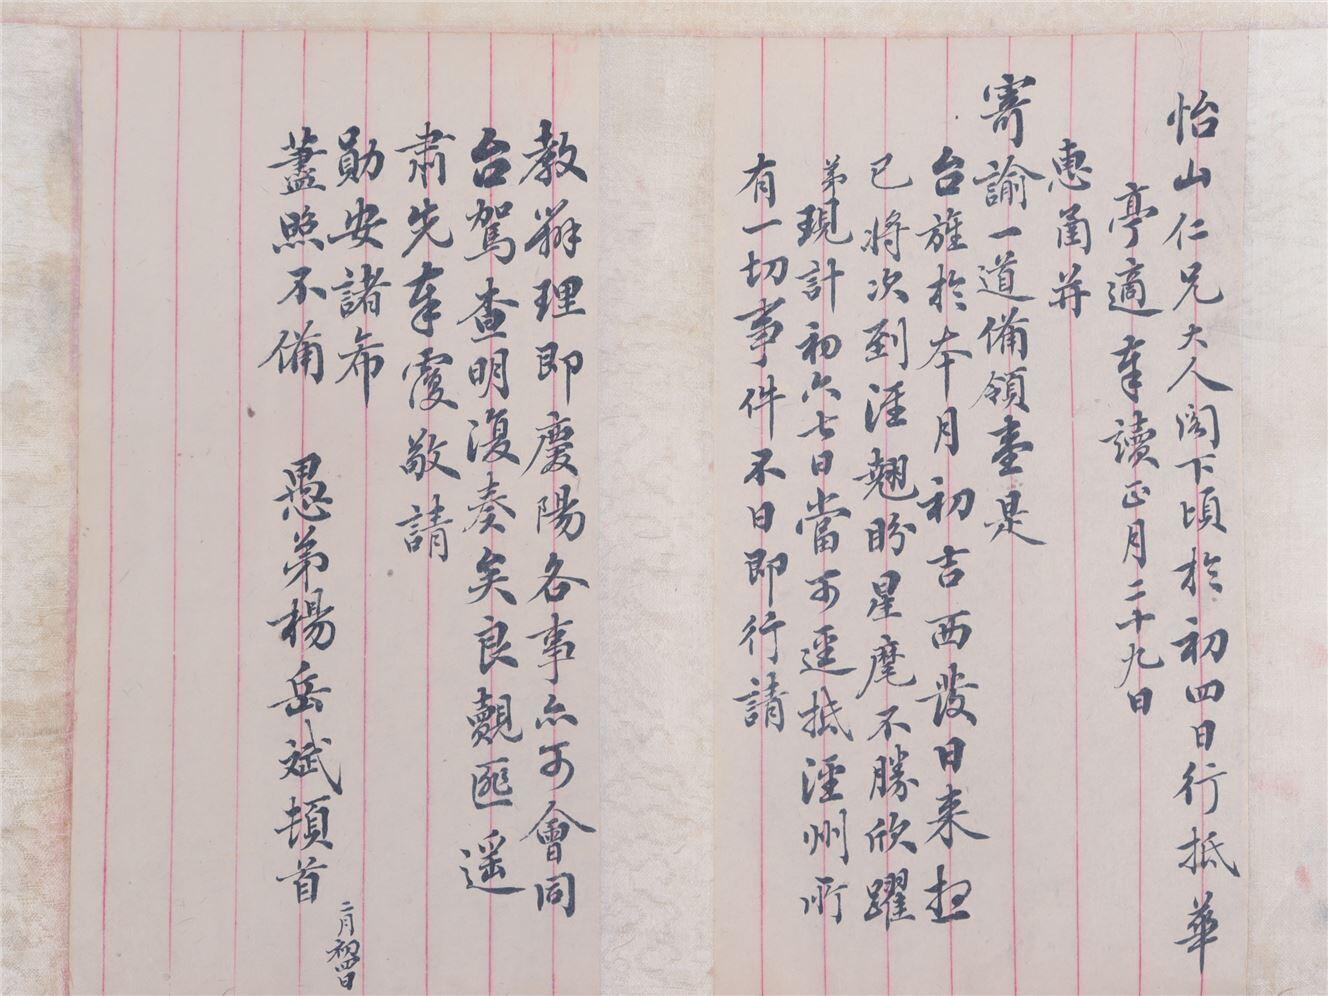 怡山仁兄大人閣下頃於初四日行抵華
亭適奉讀正月二十九日
惠函并
寄諭一道備領壹是
台旌於本月初吉西發日来想
已將次到涇翹盼星麾不勝欣躍
弟現計初六七日當可逕抵涇州所
有一切事件不日即行請
教辦理即慶陽各事亦可會同
台駕查明復奏矣良覿匪遥
肅先奉覆敬請
勛安諸希
藎照不備 愚弟楊岳斌頓首
二月初四日